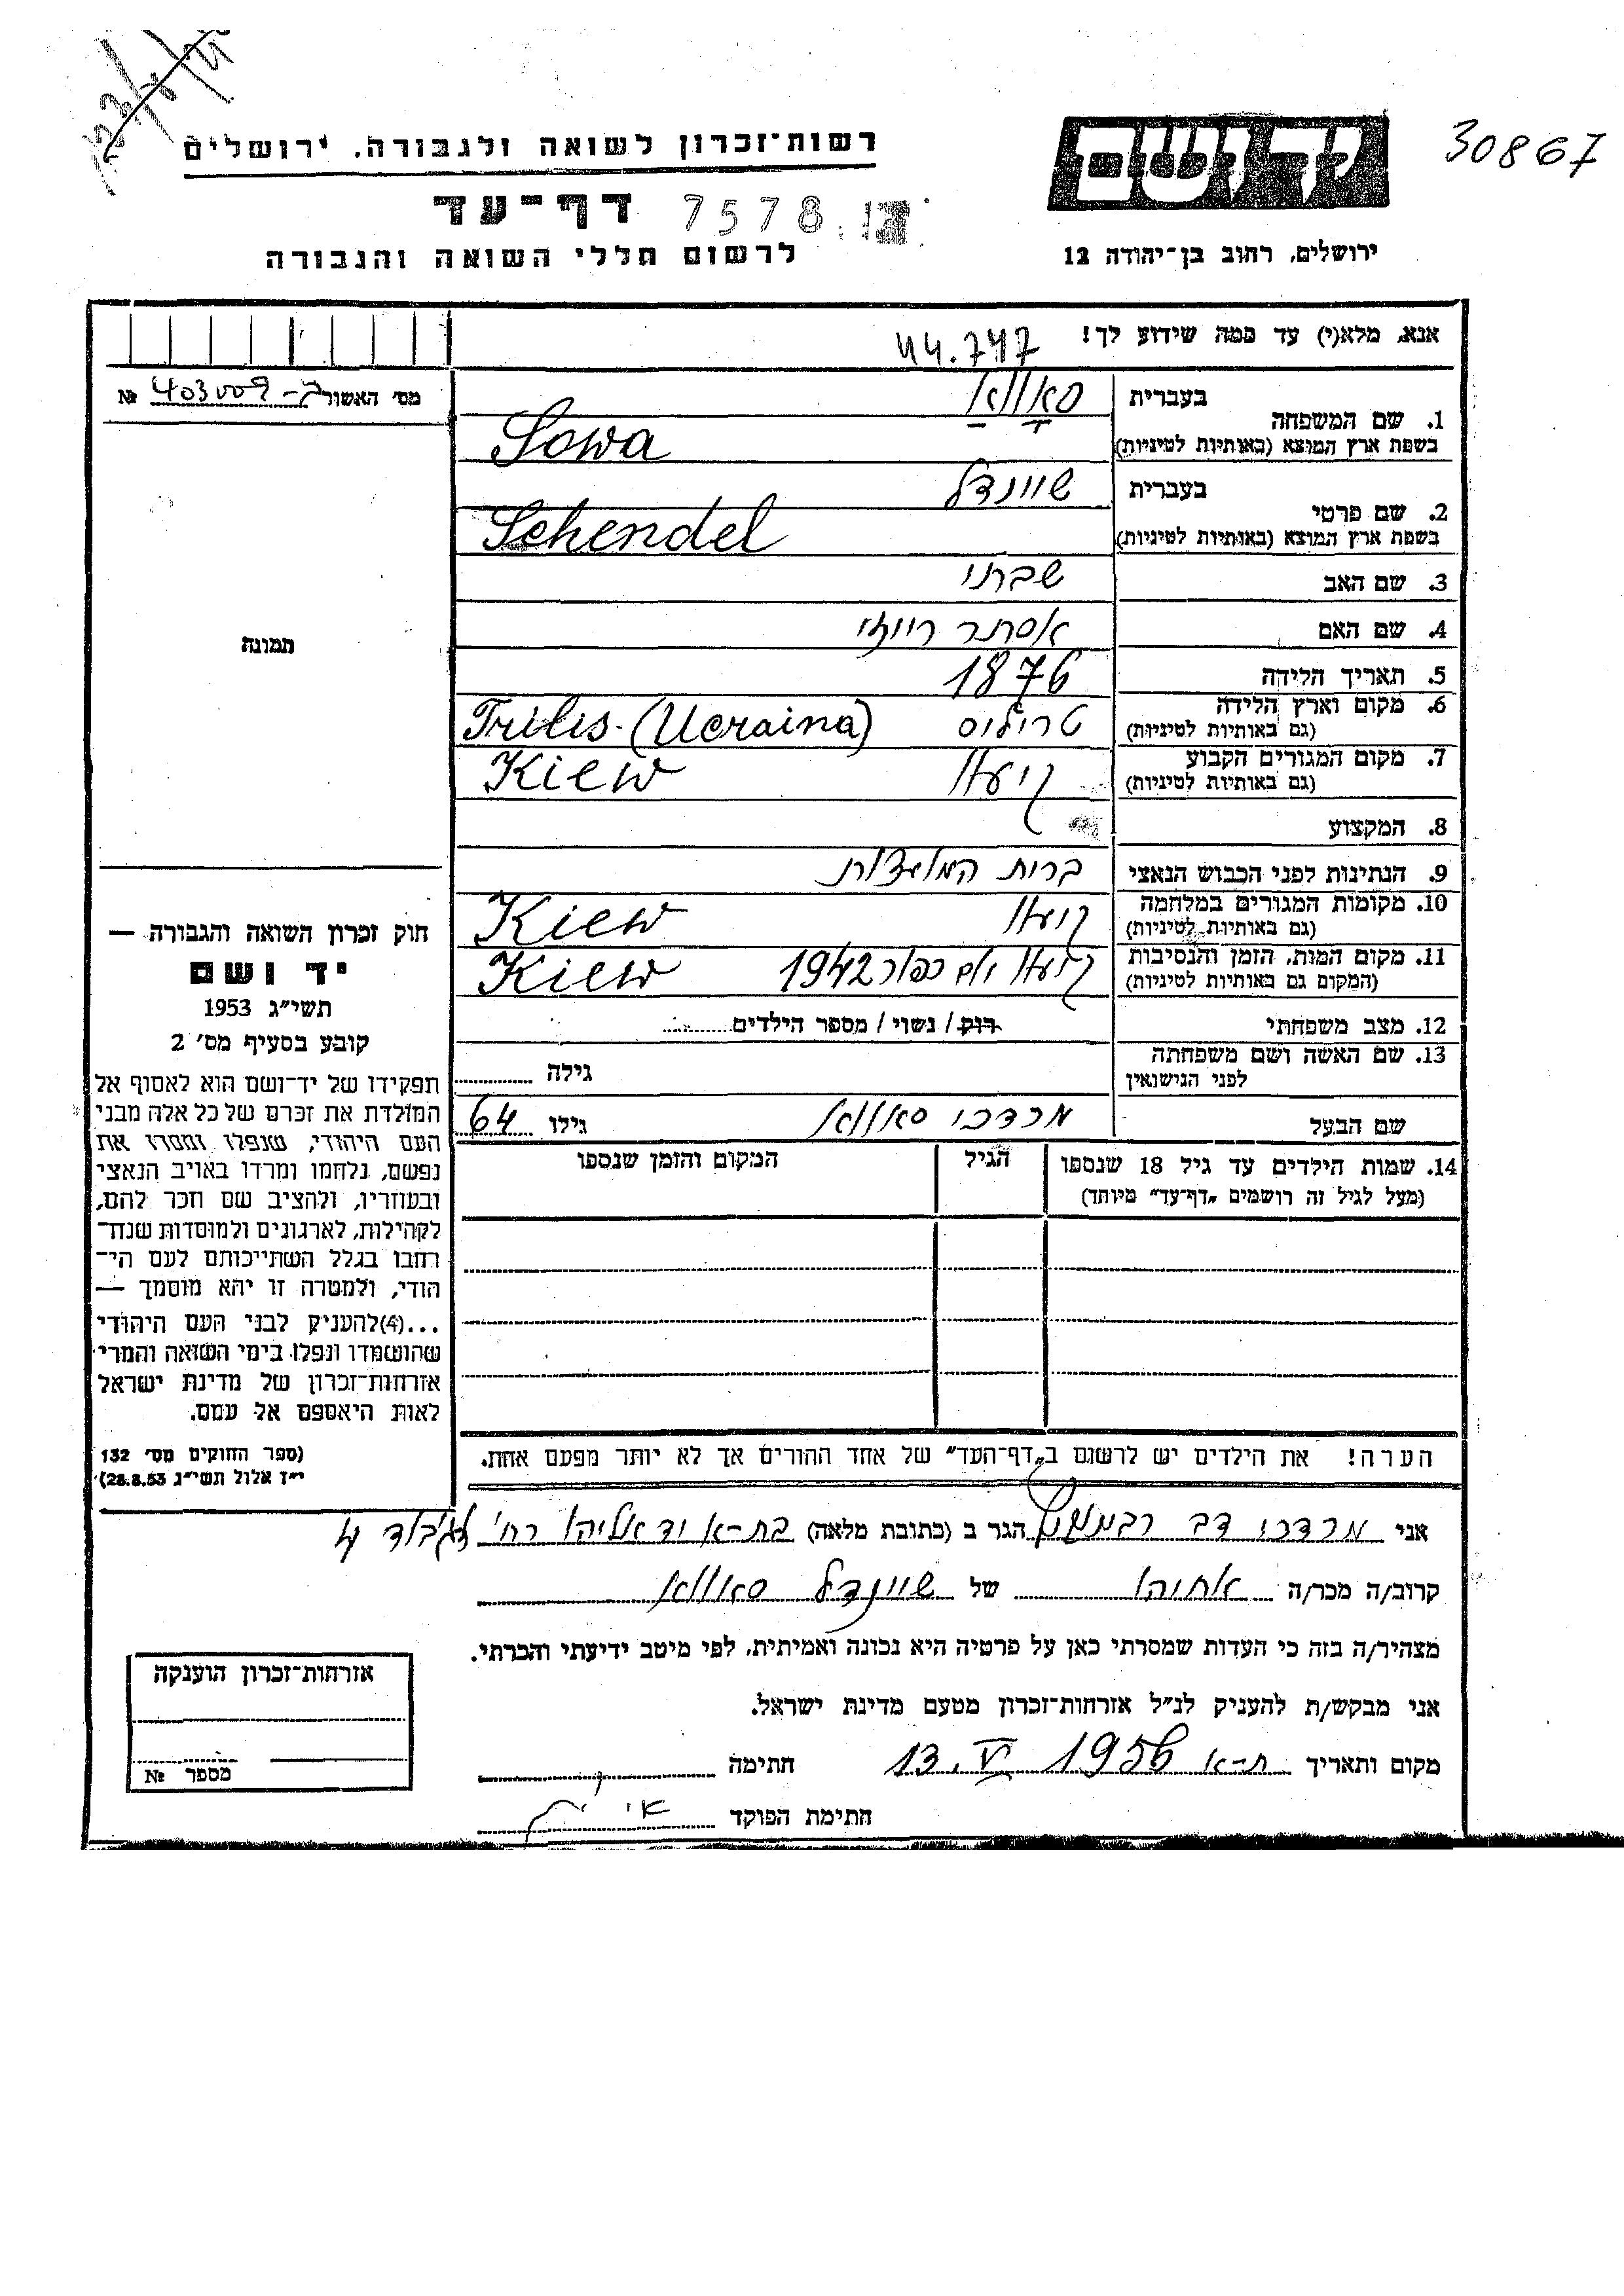 30867
יד ושם
רשות־זכרון לשואה ולגבורה, ירושלים
דף־עד 7578
ירושלים, רחוב בן־יהודה 12
לרשום חללי השואה והגבורה
אנא, מלא(י) עד כמה שידוע לך! 44.747
מס' האשור 403009 №
1. שם המשפחה
בעברית סאווא
בשפת ארץ המוצא (באותיות לטיניות) Sowa
2. שם פרטי
בעברית שיינדל
בשפת ארץ המוצא (באותיות לטיניות) Schendel
3. שם האב שבתי
4. שם האם אסתר
5. תאריך הלידה 1876
6. מקום וארץ הלידה
(גם באותיות לטיניות) טרילוס Trilis-(Ucraina)
7. מקום המגורים הקבוע
(גם באותיות לטיניות) קיעוו Kiew
8. המקצוע
9. הנתינות לפני הכבוש הנאצי ברית המועצות
10. מקומות המגורים במלחמה
(גם באותיות לטיניות) קיעוו Kiew
11. מקום המות, הזמן והנסיבות
(המקום גם באותיות לטיניות) קיעוו יום כפור 1942 Kiew
12. מצב משפחתי רוק / נשוי / מספר הילדים
13. שם האשה ושם משפחתה
לפני הנישואין גילה
שם הבעל מרדכי סאווא גילו 64
14. שמות הילדים עד גיל 18 שנספו הגיל המקום והזמן שנספו
(מעל לגיל זה רושמים "דף־עד" מיוחד)
הערה! את הילדים יש לרשום ב"דף־העד" של אחד ההורים אך לא יותר מפעם אחת.
תמונה
חוק זכרון השואה והגבורה —
יד ושם
תשי"ג 1953
קובע בסעיף מס' 2
תפקידו של יד־ושם הוא לאסוף אל
המולדת את זכרם של כל אלה מבני
העם היהודי, שנפלו ומסרו את
נפשם, נלחמו ומרדו באויב הנאצי
ובעוזריו, ולהציב שם וזכר להם,
לקהילות, לארגונים ולמוסדות שנח־
רבו בגלל השתייכותם לעם הי־
הודי, ולמטרה זו יהא מוסמך —
...(4)להעניק לבני העם היהודי
שהושמדו ונפלו בימי השואה והמרי
אזרחות־זכרון של מדינת ישראל
לאות היאספם אל עמם.
(ספר החוקים מס' 132
י"ז אלול תשי"ג 28.8.53)
אני מרדכי דב הגר ב (כתובת מלאה) בת־א יד אליהו רח' 4
קרוב/ה מכר/ה אחיה של שיינדל סאווא
מצהיר/ה בזה כי העדות שמסרתי כאן על פרטיה היא נכונה ואמיתית, לפי מיטב ידיעתי והכרתי.
אני מבקש/ת להעניק לנ"ל אזרחות־זכרון מטעם מדינת ישראל.
מקום ותאריך ת־א 13.VI 1956 חתימה
חתימת הפוקד
אזרחות־זכרון הוענקה
מספר №